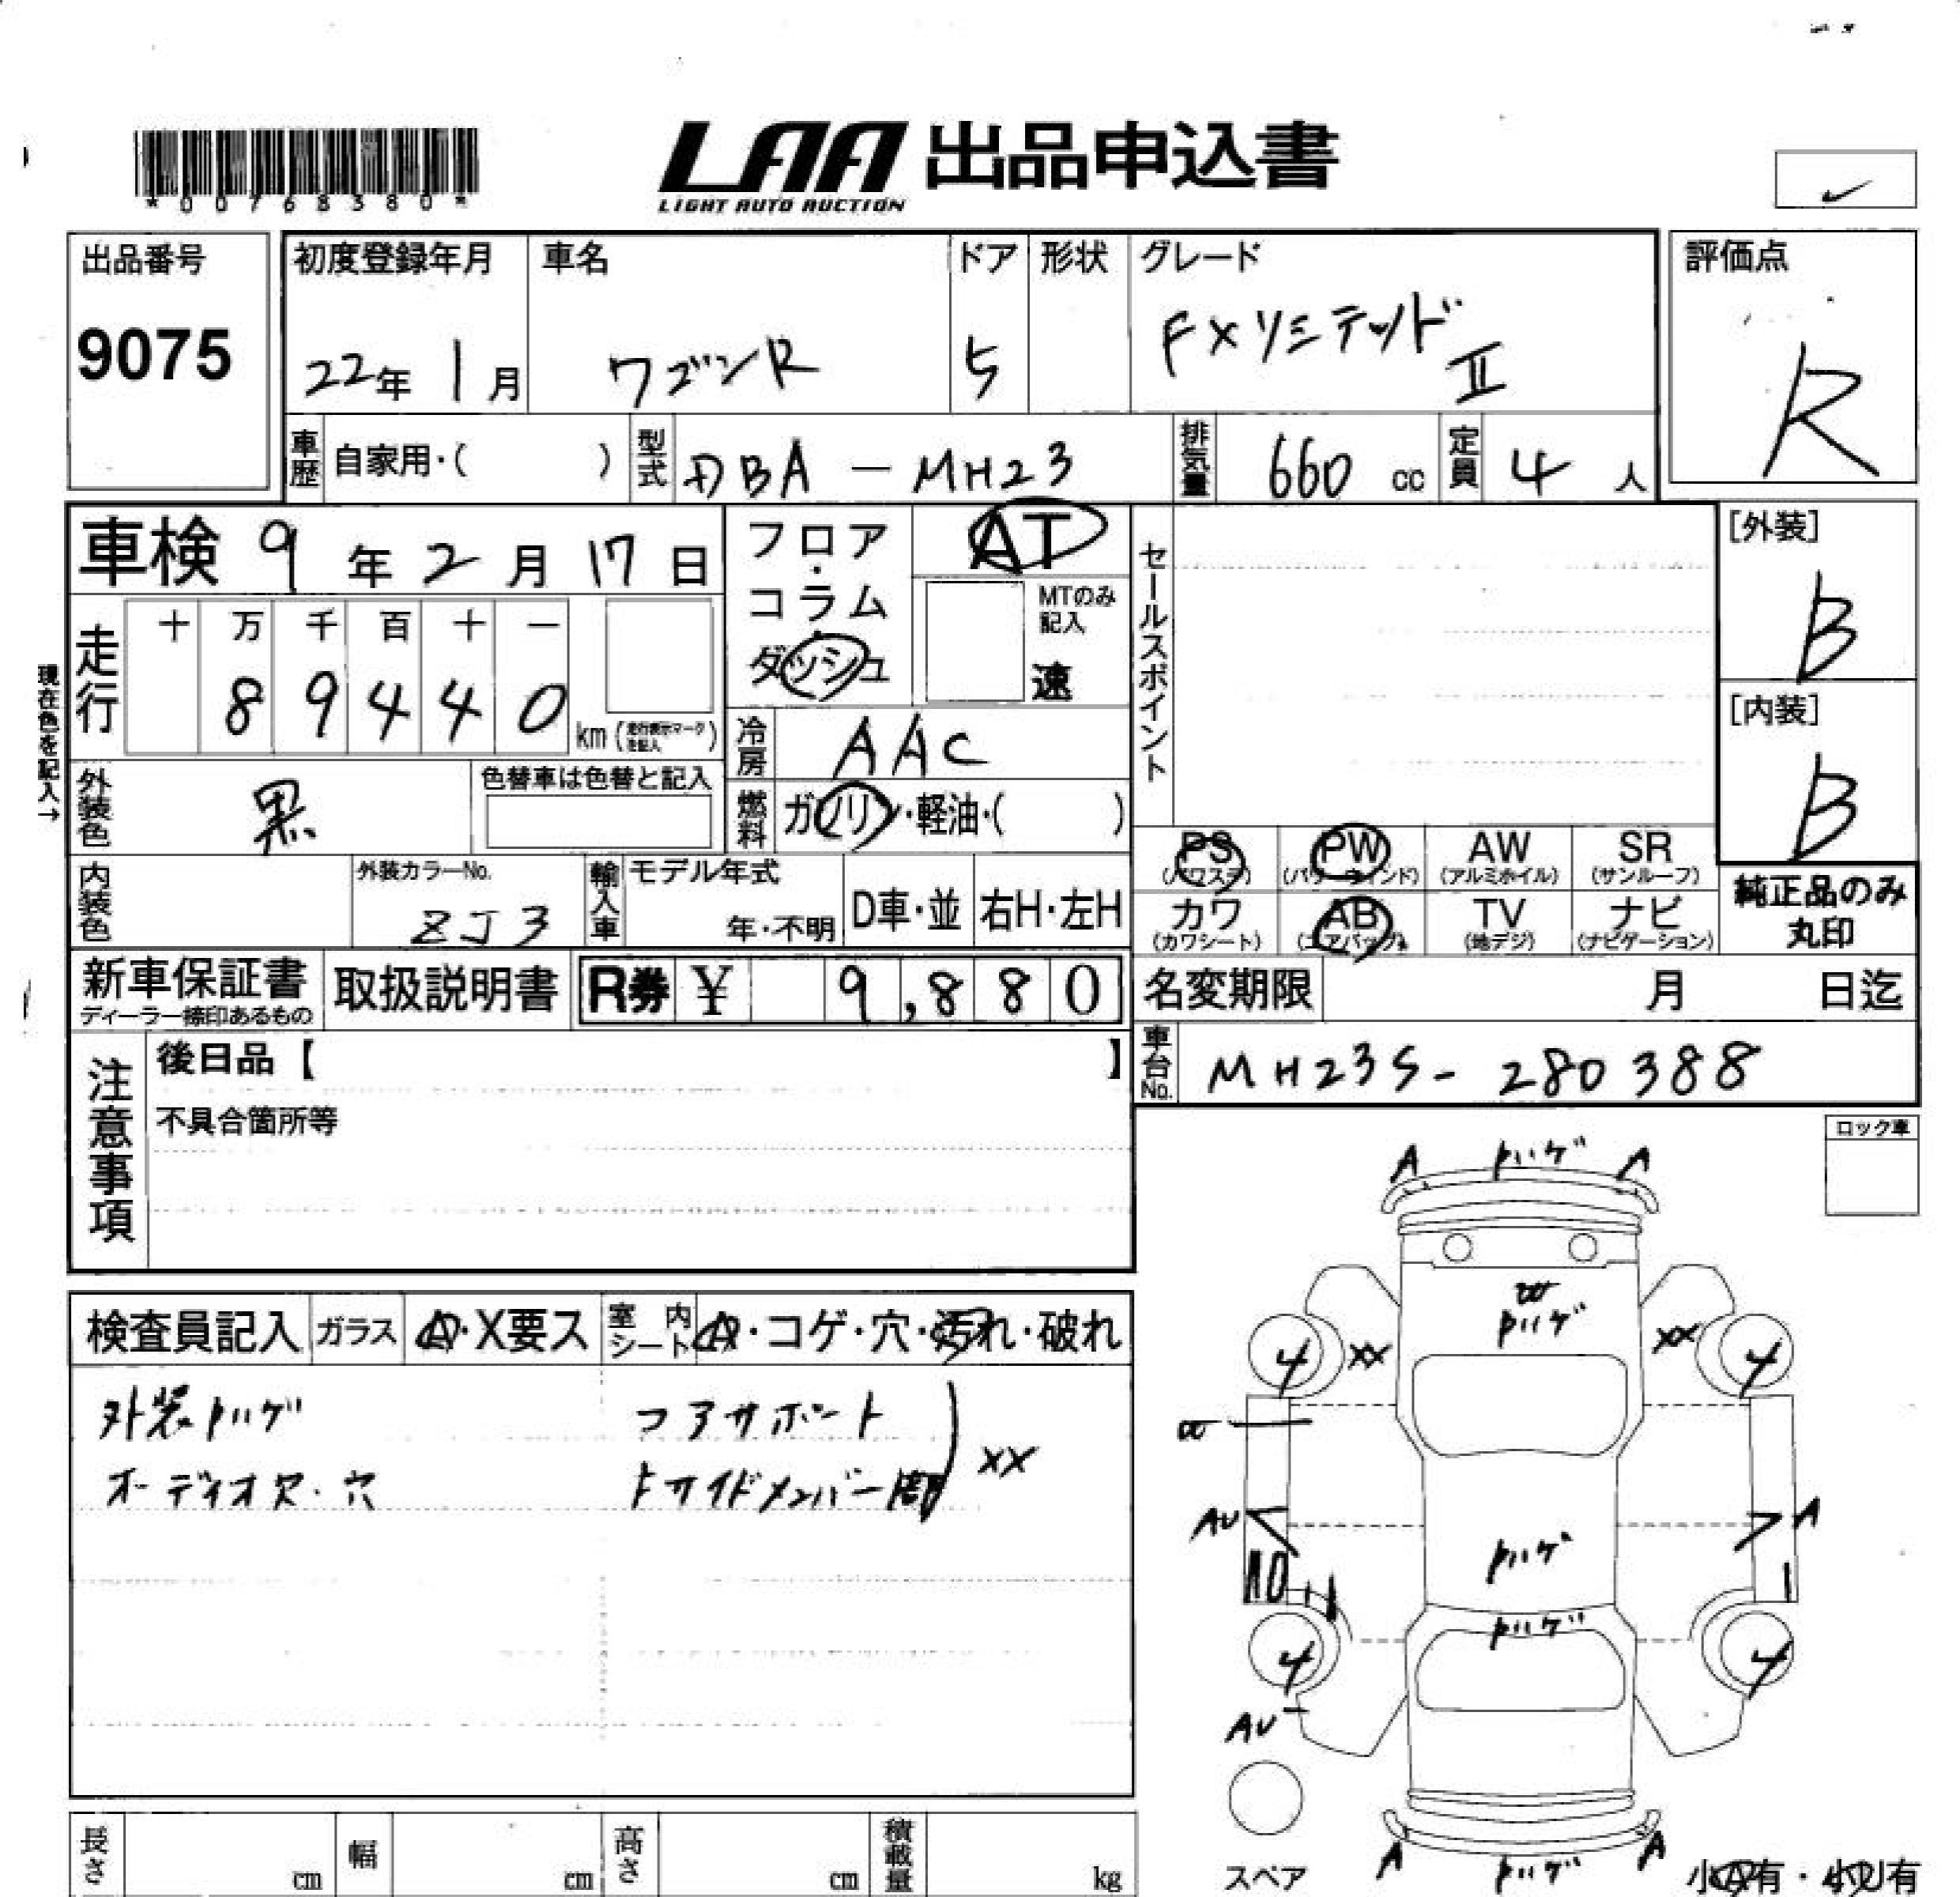 *00768380*
LAA 出品申込書
LIGHT AUTO AUCTION
出品番号
9075
初度登録年月
22年 1月
車名
ワゴンR
ドア
5
形状
グレード
FXリミテッドⅡ
評価点
R
車歴 自家用・( )
型式 DBA-MH23
排気量 660 cc
定員 4 人
車検 9年2月17日
フロア・コラム・ダッシュ
AT
MTのみ記入
速
セールスポイント
[外装]
B
[内装]
B
現在色を記入→
走行
十 万 千 百 十 一
8 9 4 4 0 km (走行表示マークを記入)
冷房 AAC
外装色 黒
色替車は色替と記入
燃料 ガソリン・軽油・( )
内装色
外装カラーNo.
ZJ3
輸入車
モデル年式
年・不明
D車・並
右H・左H
PS (パワステ)
PW (パワーウインド)
AW (アルミホイル)
SR (サンルーフ)
カワ (カワシート)
AB (エアバッグ)
TV (地デジ)
ナビ (ナビゲーション)
純正品のみ丸印
新車保証書
ディーラー捺印あるもの
取扱説明書
R券 ¥ 9,880
名変期限 月 日迄
車台No. MH23S-280388
注意事項
後日品【 】
不具合箇所等
ロック車
検査員記入
ガラス A・X要ス
室内シート A・コゲ・穴・汚れ・破れ
外装ハゲ
オーディオ欠・穴
コアサポート
トサイドメンバー間
XX
A ハゲ A
ハゲ
XX XX
4 4
AU A
ハゲ
ハゲ
4 4
AU
スペア
A ハゲ A
小A有・小U有
長さ cm
幅 cm
高さ cm
積載量 kg